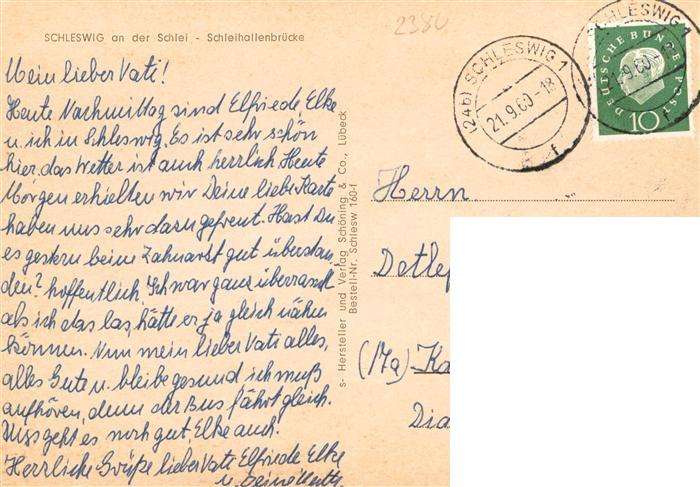 2380
SCHLESWIG an der Schlei - Schleihallenbrücke
Mein lieber Vati!
Heute Nachmittag sind Elfriede Elke
u. ich in Schleswig. Es ist sehr schön
hier, das Wetter ist auch herrlich. Heute
Morgen erhielten wir Deine liebe Karte
haben uns sehr dazu gefreut. Hast Du
es gestern beim Zahnarzt gut überstan
den? hoffentlich. Ich war ganz überrascht
als ich das las, hätte er ja gleich
können. Nun mein lieber Vati alles,
alles Gute u. bleibe gesund ich muß
aufhören, denn der Bus fährt gleich.
Uns geht es noch gut, Elke auch.
Herrliche Grüße lieber Vati Elfriede Elke
u. Deine
s- Hersteller und Verlag Schöning & Co., Lübeck
Bestell-Nr. Schlesw 160-f
(24b) SCHLESWIG 1
21.9.60.-18
f
SCHLESWIG 1
.9.60.-
f
DEUTSCHE BUNDESPOST
10
Herrn
Detlef
(Ma) Ka
Dia